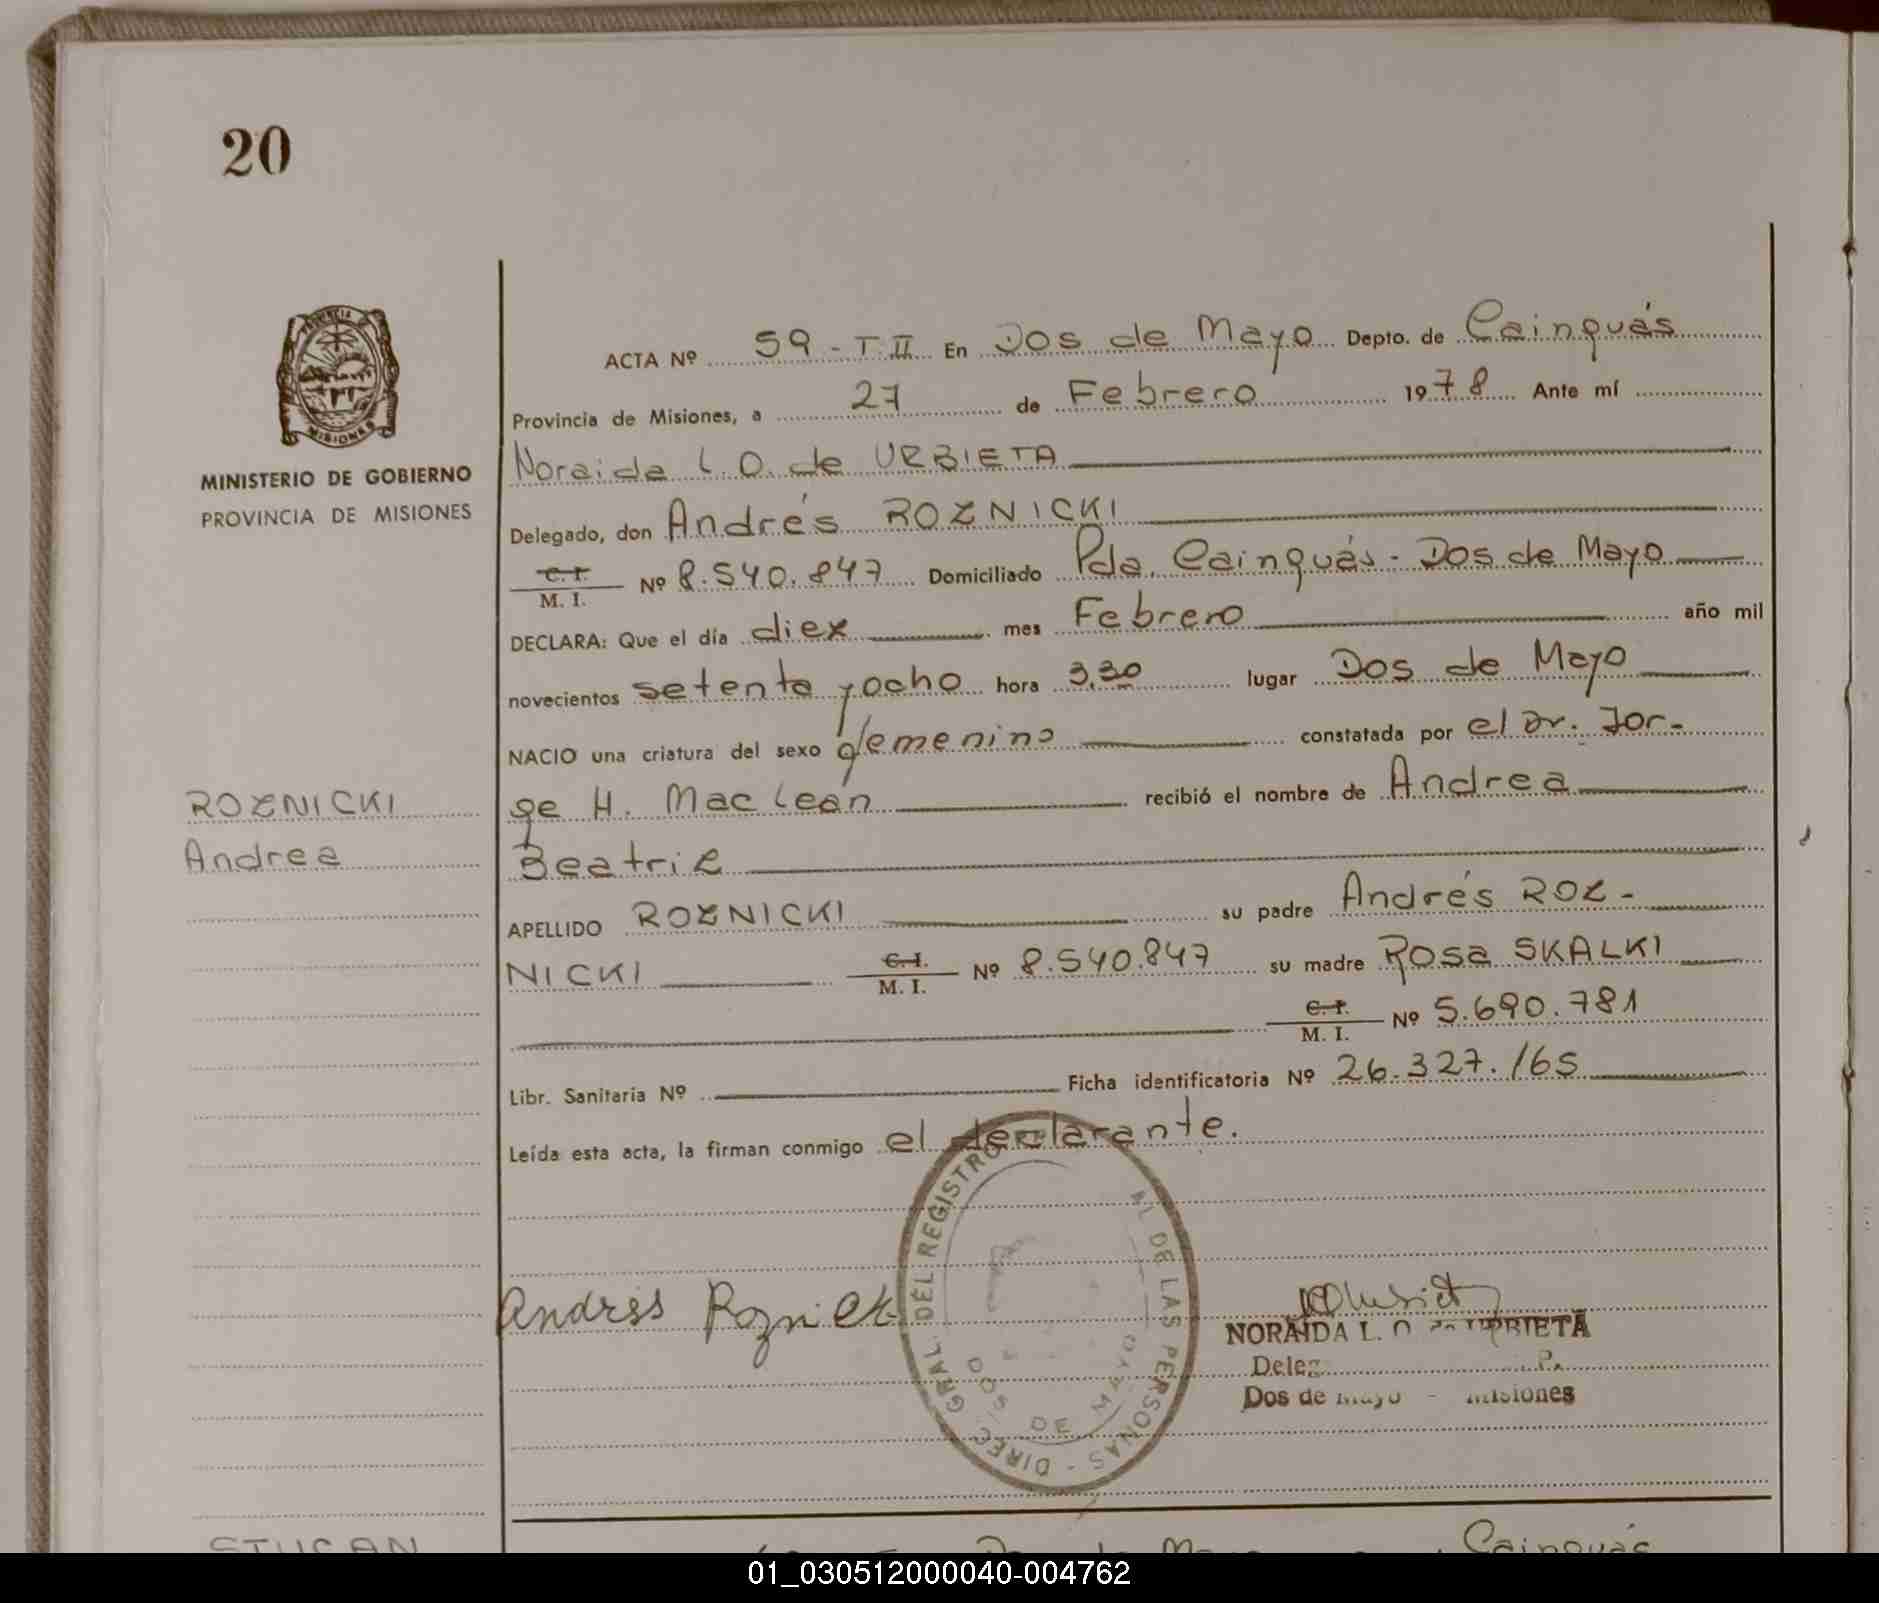 20
PROVINCIA
MISIONES
MINISTERIO DE GOBIERNO
PROVINCIA DE MISIONES
ACTA Nº 59 - T II En Dos de Mayo Depto. de Cainguás
Provincia de Misiones, a 27 de Febrero 1978 Ante mí
Noraida L. O. de URBIETA
Delegado, don Andrés ROZNICKI
C. I. M. I. Nº 8.540.847 Domiciliado Pda. Cainguás - Dos de Mayo
DECLARA: Que el día diez mes Febrero año mil
novecientos setenta y ocho hora 3,30 lugar Dos de Mayo
NACIO una criatura del sexo femenino constatada por el Dr. Jor-
ge H. Mac Lean recibió el nombre de Andrea
Beatriz
APELLIDO ROZNICKI su padre Andrés ROZ-
NICKI C. I. M. I. Nº 8.540.847 su madre Rosa SKALKI
C. I. M. I. Nº 5.690.781
Libr. Sanitaria Nº Ficha identificatoria Nº 26.327.165
Leída esta acta, la firman conmigo el declarante.
ROZNICKI
Andrea
Andrés Roznicki
DIREC. GRAL. DEL REGISTRO DE LAS PERSONAS -
DOS DE MAYO
NORAIDA L. O. de URBIETA
Dos de Mayo - Misiones
Dos de Mayo Cainguás
01_030512000040-004762